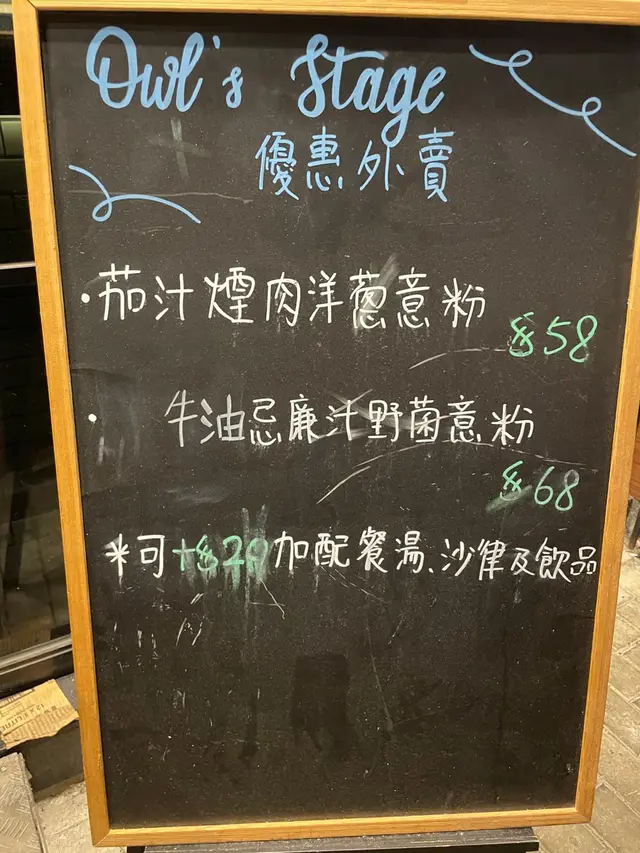 Owl's Stage
優惠外賣
·茄汁煙肉洋蔥意粉
$58
· 牛油忌廉汁野菌意粉
$68
*可+$20加配餐湯、沙律及飲品